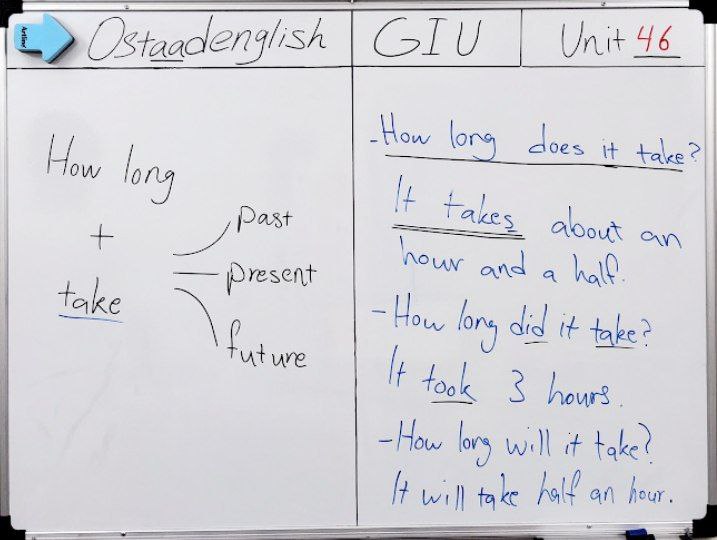 Ostaadenglish
GIU
Unit 46
How long
+
take
past
present
future
-How long does it take?
It takes about an
hour and a half.
-How long did it take?
It took 3 hours.
-How long will it take?
It will take half an hour.